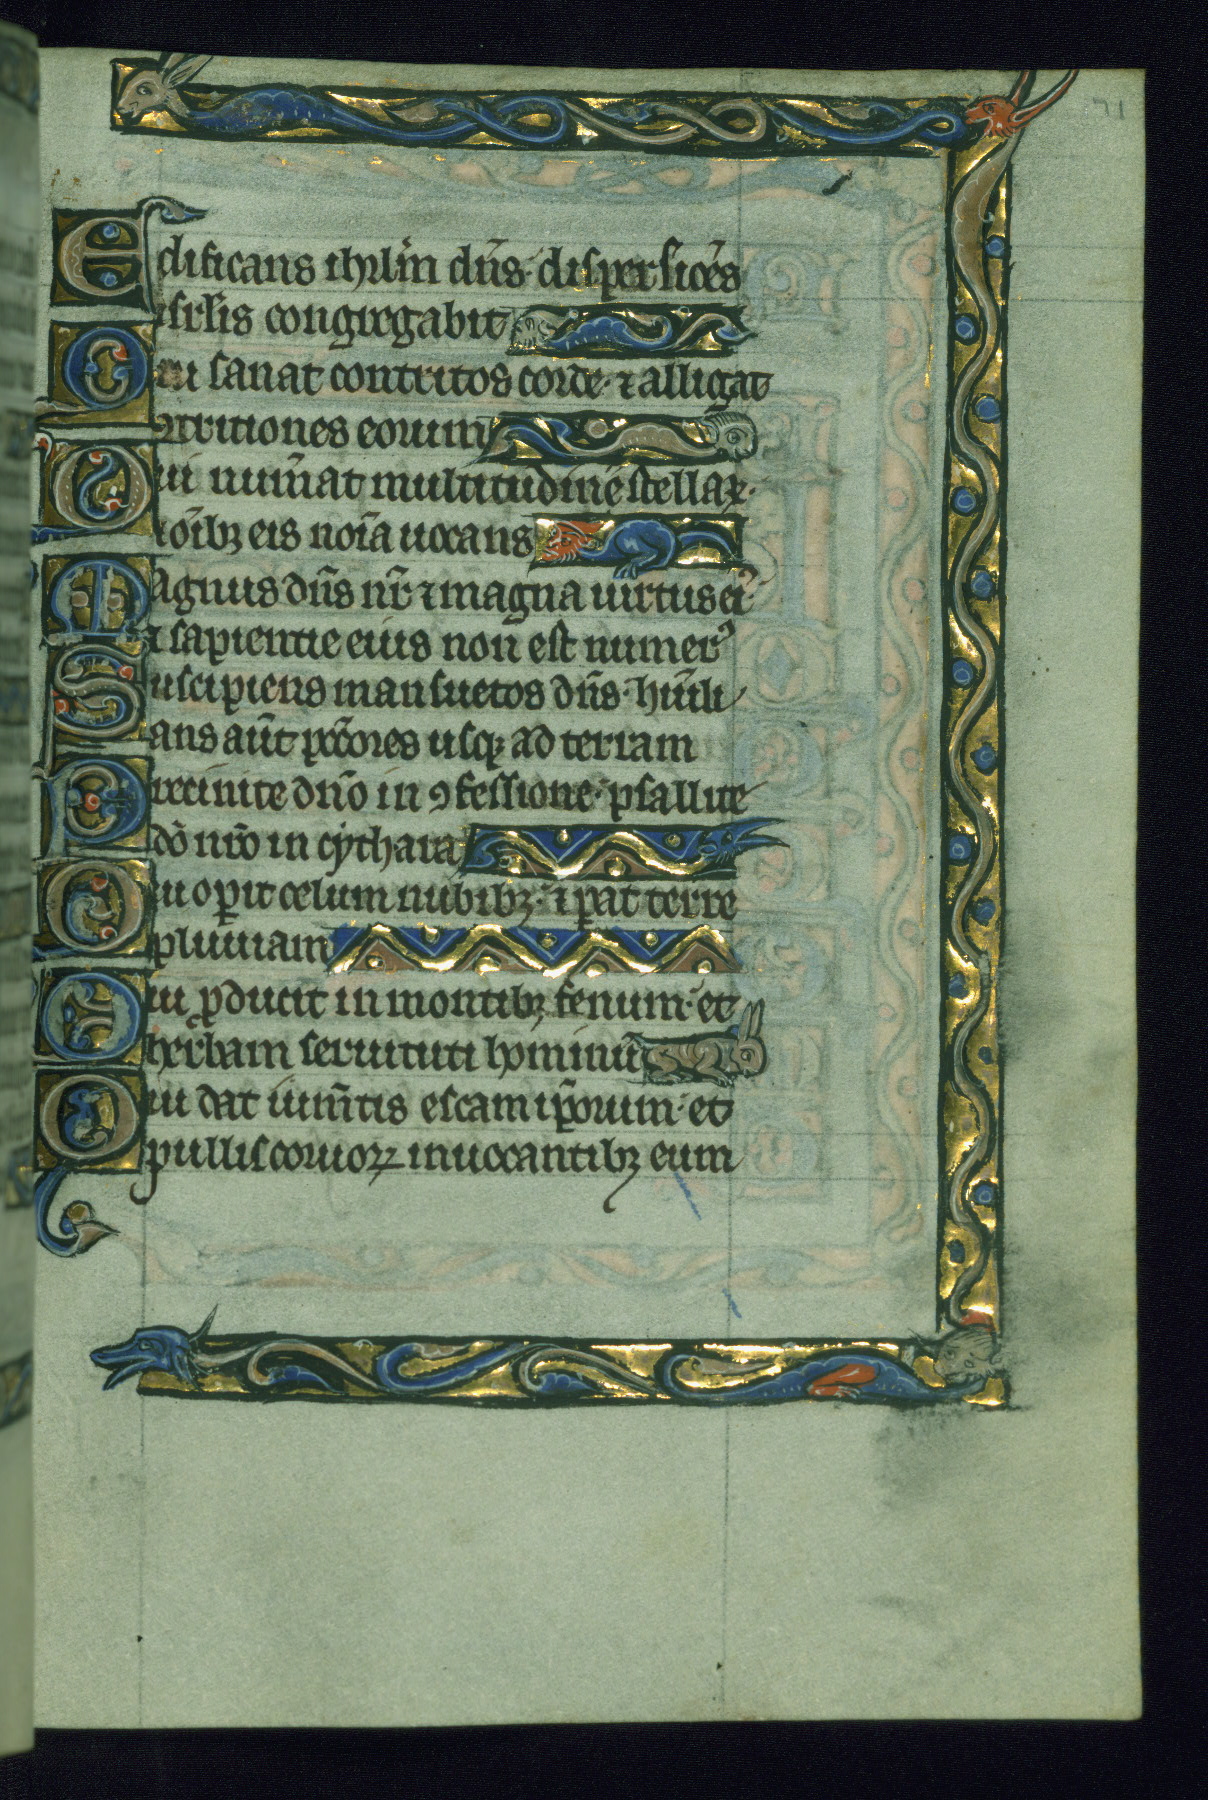 71
Edificans ihrl̄m dn̄s· dispersiōēs
isrl̄is congregabit
Qui sanat contritos corde· ⁊ alligat
ꝯtritiones eorum
Qui num̄at multitudinē stellaꝝ·
⁊ om̄ibꝫ eis noīa uocans
Magnus dn̄s nr̄ ⁊ magna uirtus eiꝰ
⁊ sapientie eius non est numerꝰ
Suscipiens mansuetos dn̄s· hūili
ans aūt pc̄c̄ores usqꝫ ad terram
Precinite dn̄o in ꝯfessione· psallite
dō nr̄o in cythara
Qui oꝑit celum nubibꝫ· ⁊ ꝑat terre
pluuiam
Qui ꝓducit in montibꝫ fenum· et
herbam seruituti hominū
Qui dat ium̄tis escam ip̄orum· et
pullis coruoꝝ inuocantibꝫ eum